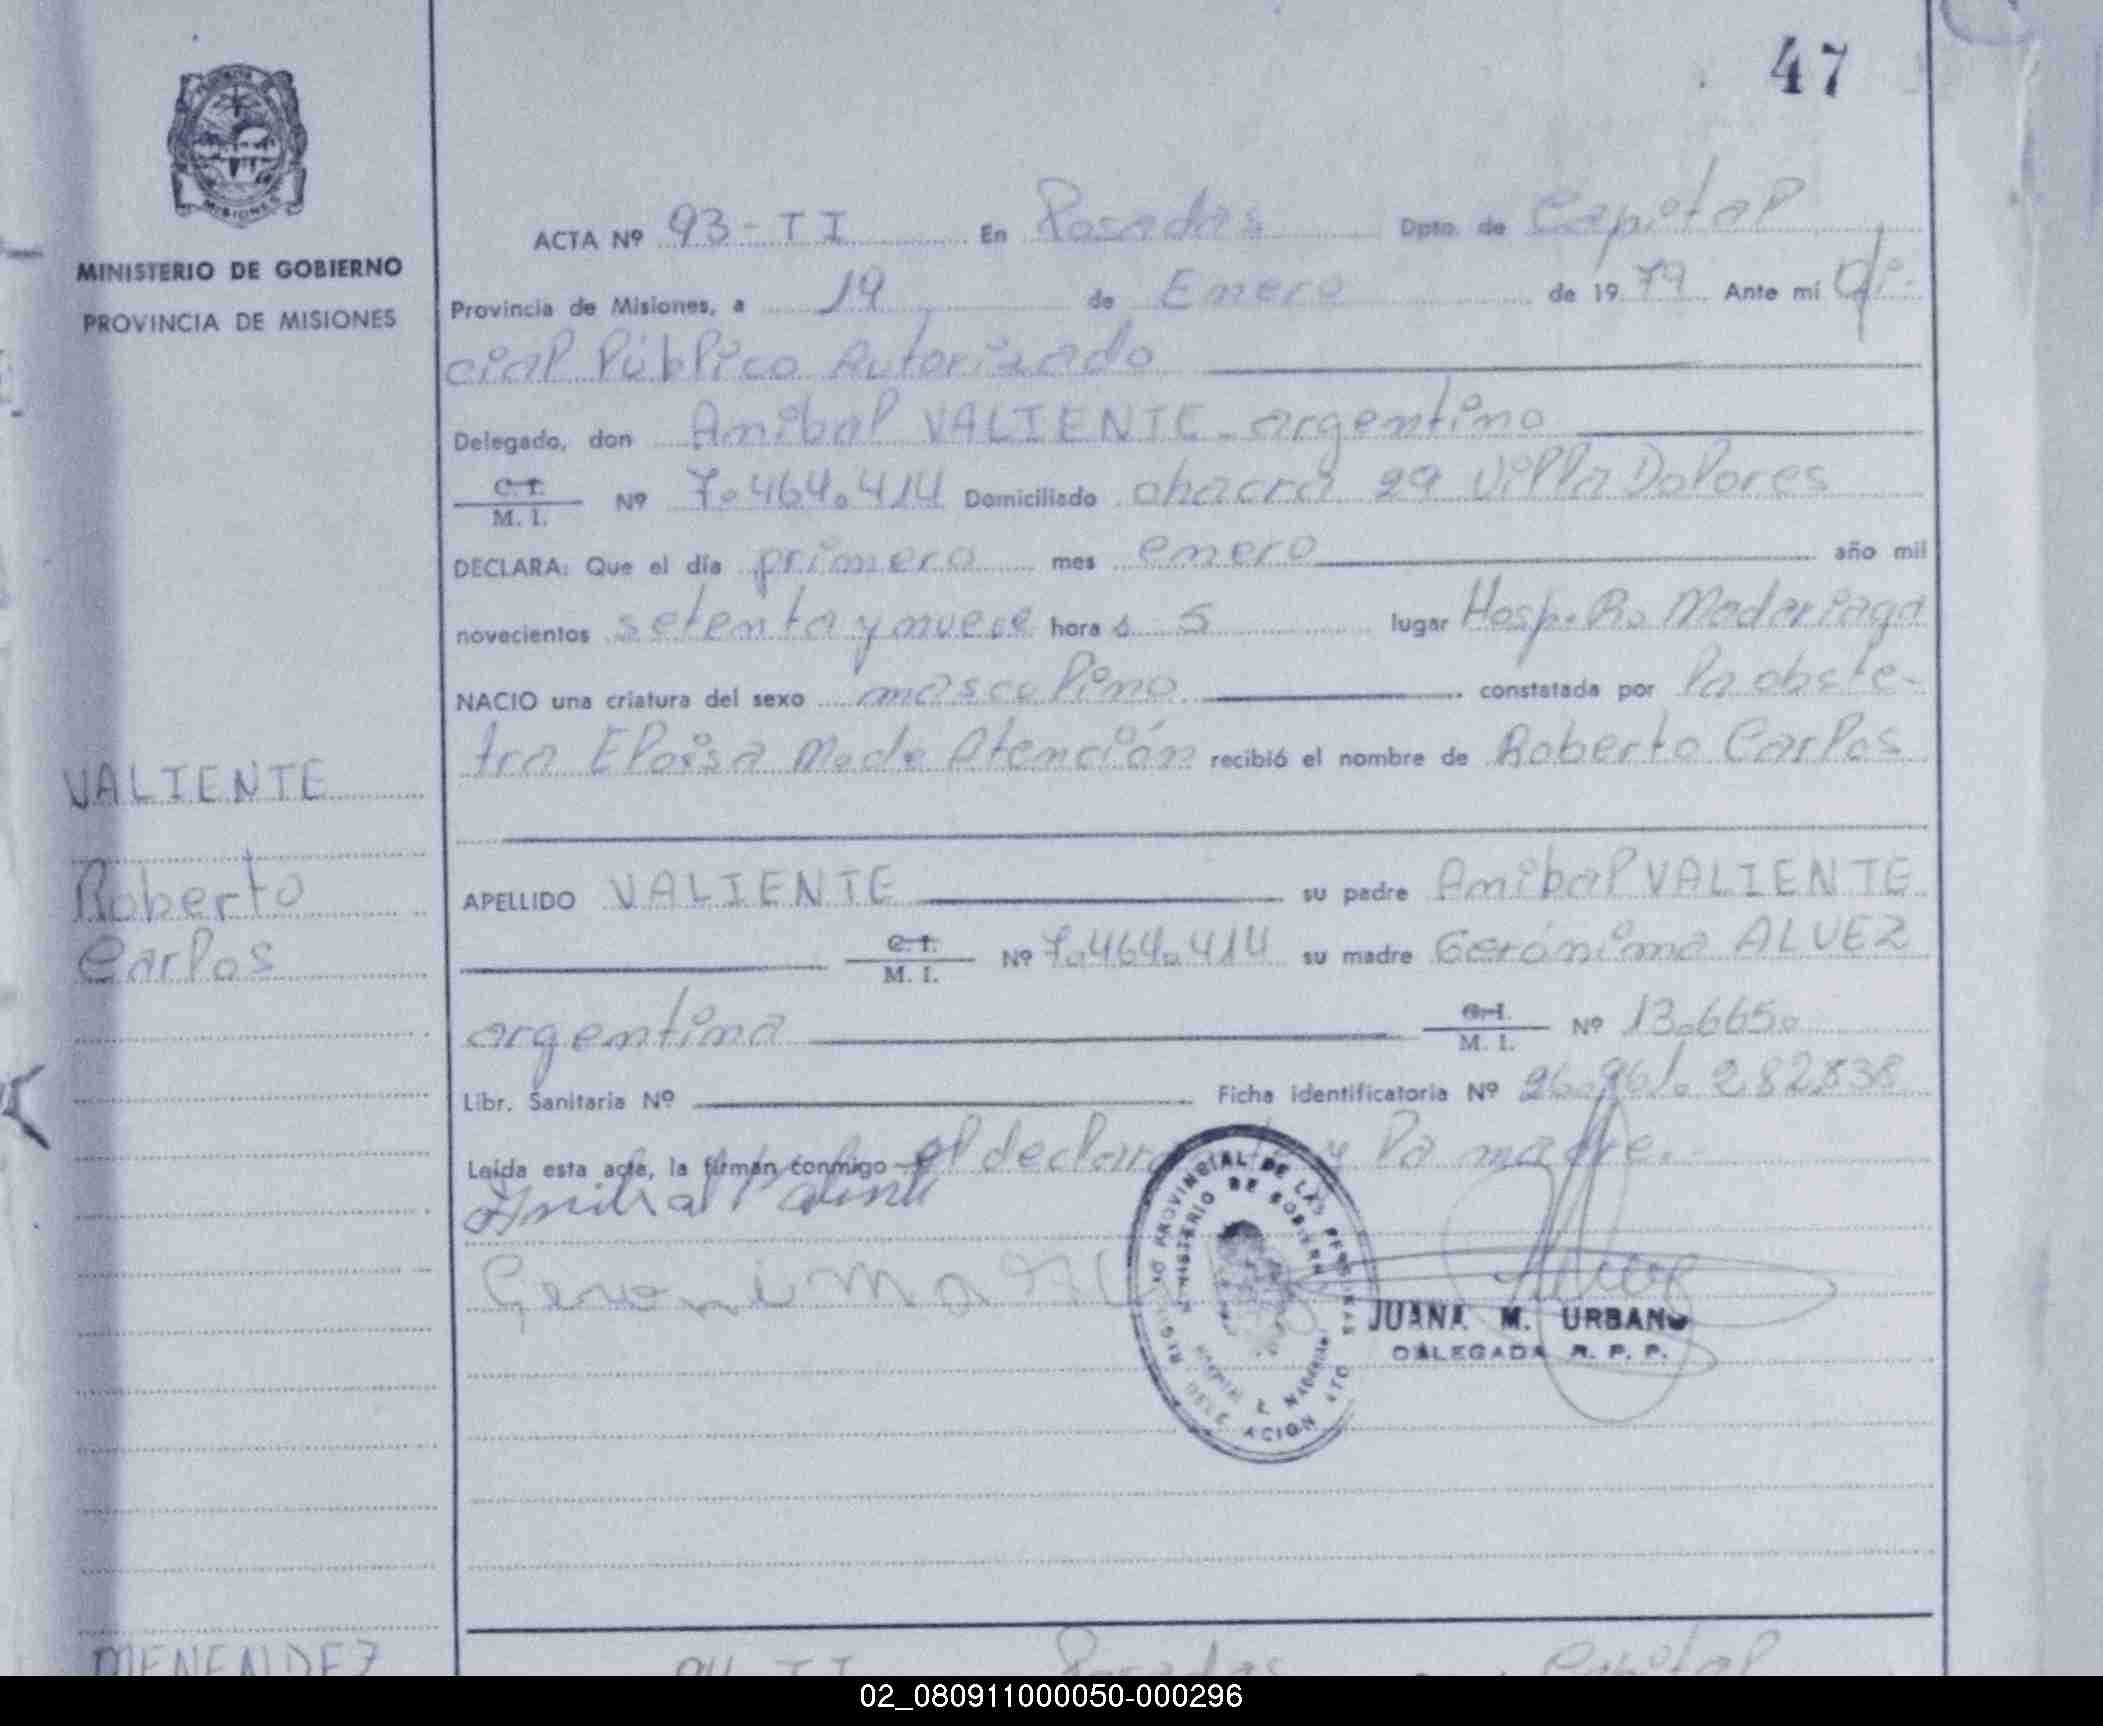 47
MISIONES
MINISTERIO DE GOBIERNO
PROVINCIA DE MISIONES
ACTA Nº 93-II En Posadas Dpto. de Capital
Provincia de Misiones, a 19 de Enero de 1979 Ante mí Ofi-
cial Público Autorizado
Delegado, don Anibal VALIENTE - argentino
C. I. / M. I. Nº 7.464.414 Domiciliado chacra 29 Villa Dolores
DECLARA: Que el día primero mes enero año mil
novecientos setenta y nueve hora s 5 lugar Hosp. R. Madariaga
NACIO una criatura del sexo masculino constatada por la obste-
tra Eloisa M. de Atención recibió el nombre de Roberto Carlos
VALIENTE
Roberto
Carlos
APELLIDO VALIENTE su padre Anibal VALIENTE
C. I. / M. I. Nº 7.464.414 su madre Gerónima ALVEZ
argentina C. I. / M. I. Nº 13.665.
Libr. Sanitaria Nº Ficha identificatoria Nº 282.838
Leída esta acta, la firman conmigo el declarante y la madre.
Anibal Valiente
Geronima
REGISTRO PROVINCIAL DE LAS PERSONAS
MINISTERIO DE GOBIERNO
HOSPITAL R. MADARIAGA
DELEGACION
JUANA M. URBANO
DELEGADA R. P. P.
MENENDEZ
94-II Posadas Capital
02_080911000050-000296